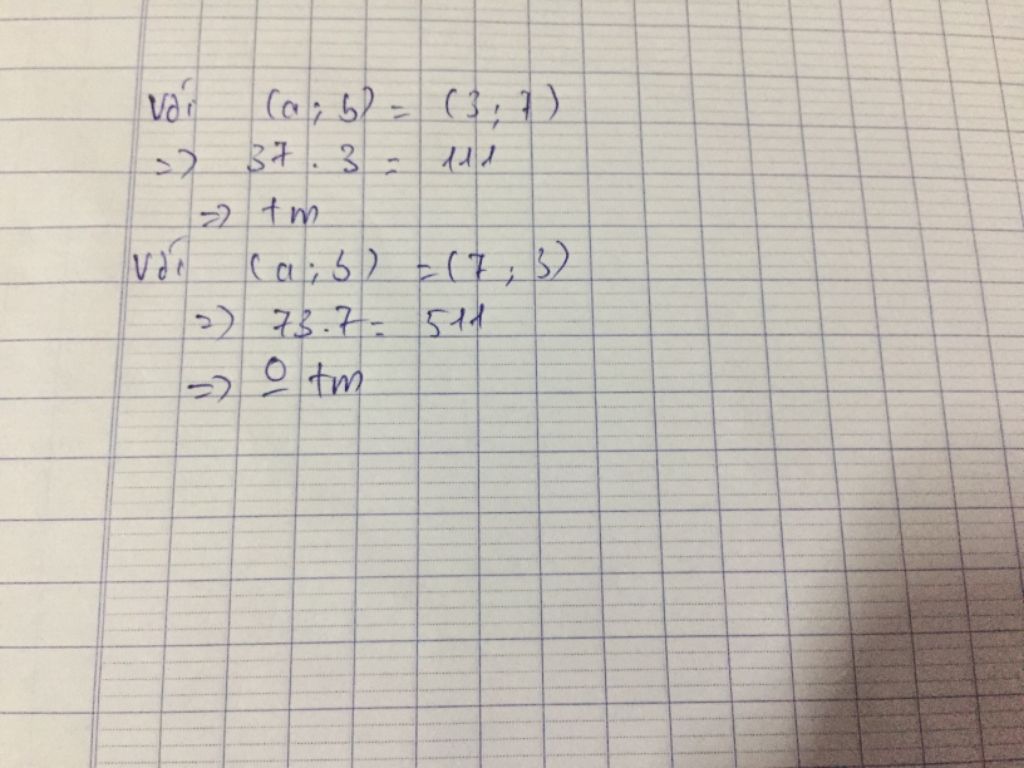 Với (a; b) = (3; 7)
=> 37 . 3 = 111
=> tm
Với (a; b) = (7; 3)
=> 73.7 = 511
=> o̲ tm